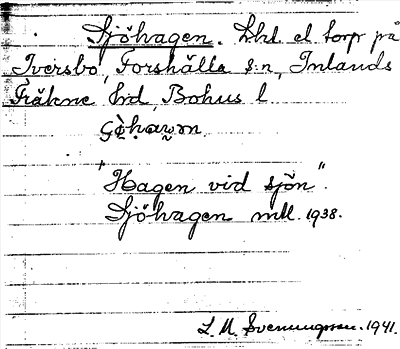 Sjöhagen. Lht el torp på
Iversbo, Forshälla s:n, Inlands
Fräkne hd, Bohus l

"Hagen vid sjön".
Sjöhagen mtl. 1938.
L. M. Svenungsson. 1941.